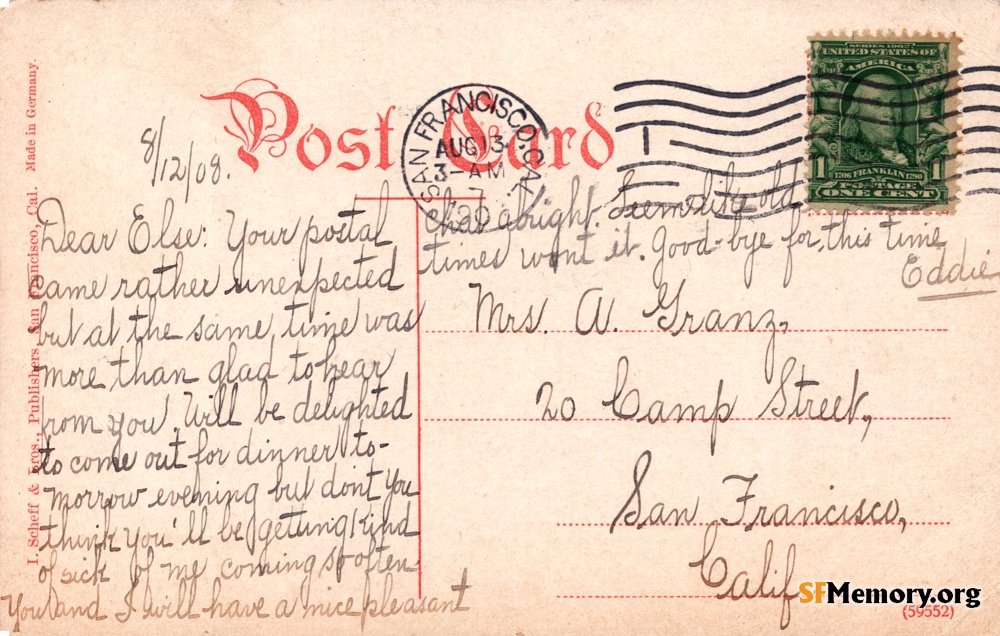 Post Card
SAN FRANCISCO, CAL.
AUG 13
3-AM
190
1
SERIES 1902
UNITED STATES OF
AMERICA
1 1706 FRANKLIN 1790 1
POSTAGE
ONE CENT
I. Scheff & Bros., Publishers, San Francisco, Cal. Made in Germany.
8/12/08.
Dear Else: Your postal
came rather unexpected
but at the same time was
more than glad to hear
from you. Will be delighted
to come out for dinner to-
morrow evening but dont you
think you'll be getting kind
of sick of me coming so often
You and I will have a nice pleasant
chat alright. Seem like old
times wont it. Good-bye for this time
Eddie
Mrs. A. Granz,
20 Camp Street,
San Francisco,
Calif
SFMemory.org
(59552)